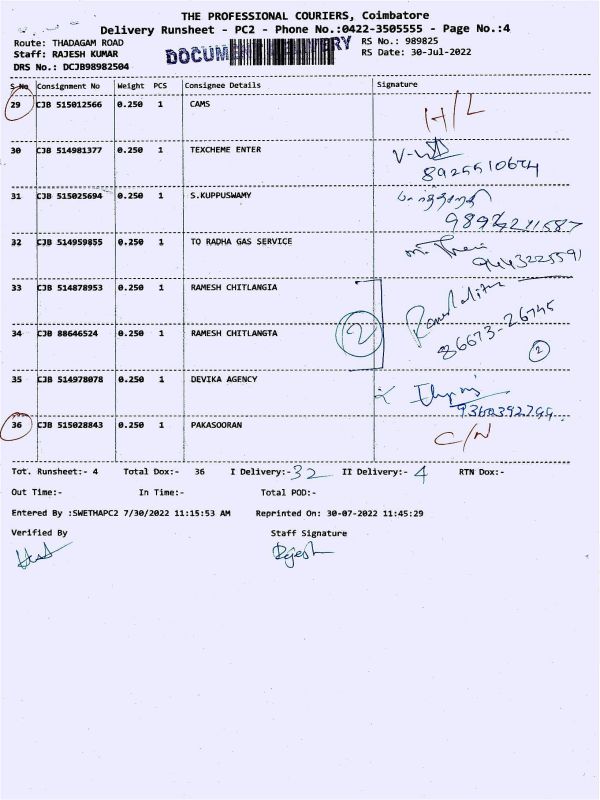 THE PROFESSIONAL COURIERS, Coimbatore
Delivery Runsheet - PC2 - Phone No.:0422-3505555 - Page No.:4
Route: THADAGAM ROAD
RS No.: 989825
Staff: RAJESH KUMAR
RS Date: 30-Jul-2022
DRS No.: DCJB98982504
S.No Consignment No Weight PCS Consignee Details Signature
29 CJB 515012566 0.250 1 CAMS H/L
30 CJB 514981377 0.250 1 TEXCHEME ENTER
31 CJB 515025694 0.250 1 S.KUPPUSWAMY
32 CJB 514959855 0.250 1 TO RADHA GAS SERVICE
9443225591
33 CJB 514878953 0.250 1 RAMESH CHITLANGIA
34 CJB 88646524 0.250 1 RAMESH CHITLANGTA 2
86673-26745
2
35 CJB 514978078 0.250 1 DEVIKA AGENCY
36 CJB 515028843 0.250 1 PAKASOORAN C/N
Tot. Runsheet:- 4 Total Dox:- 36 I Delivery:- 32 II Delivery:- 4 RTN Dox:-
Out Time:- In Time:- Total POD:-
Entered By :SWETHAPC2 7/30/2022 11:15:53 AM Reprinted On: 30-07-2022 11:45:29
Verified By Staff Signature
Rajesh